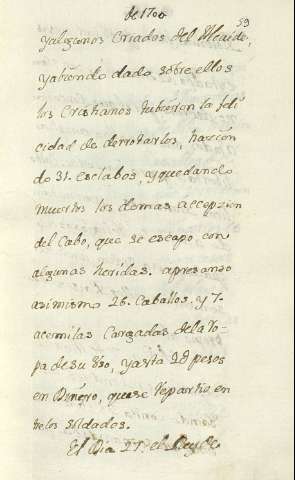 de 1700.
59
yalgunos Criados del Alcaide,
yabiendo dado sobre ellos
los Cristianos tubieron la feli
cidad de derrotarlos, hacien
do 31. esclabos y quedando
muertos los demas a excepzion
del Cabo, que se escapo con
algunas heridas. apresando
asimismo 26. Caballos, y 7.
acemilas Cargadas de la ro-
pa de su Uso, yasta 2@ pesos
en Dinero, que se repartio en
tre los soldados.
El Dia 27. el Rey de